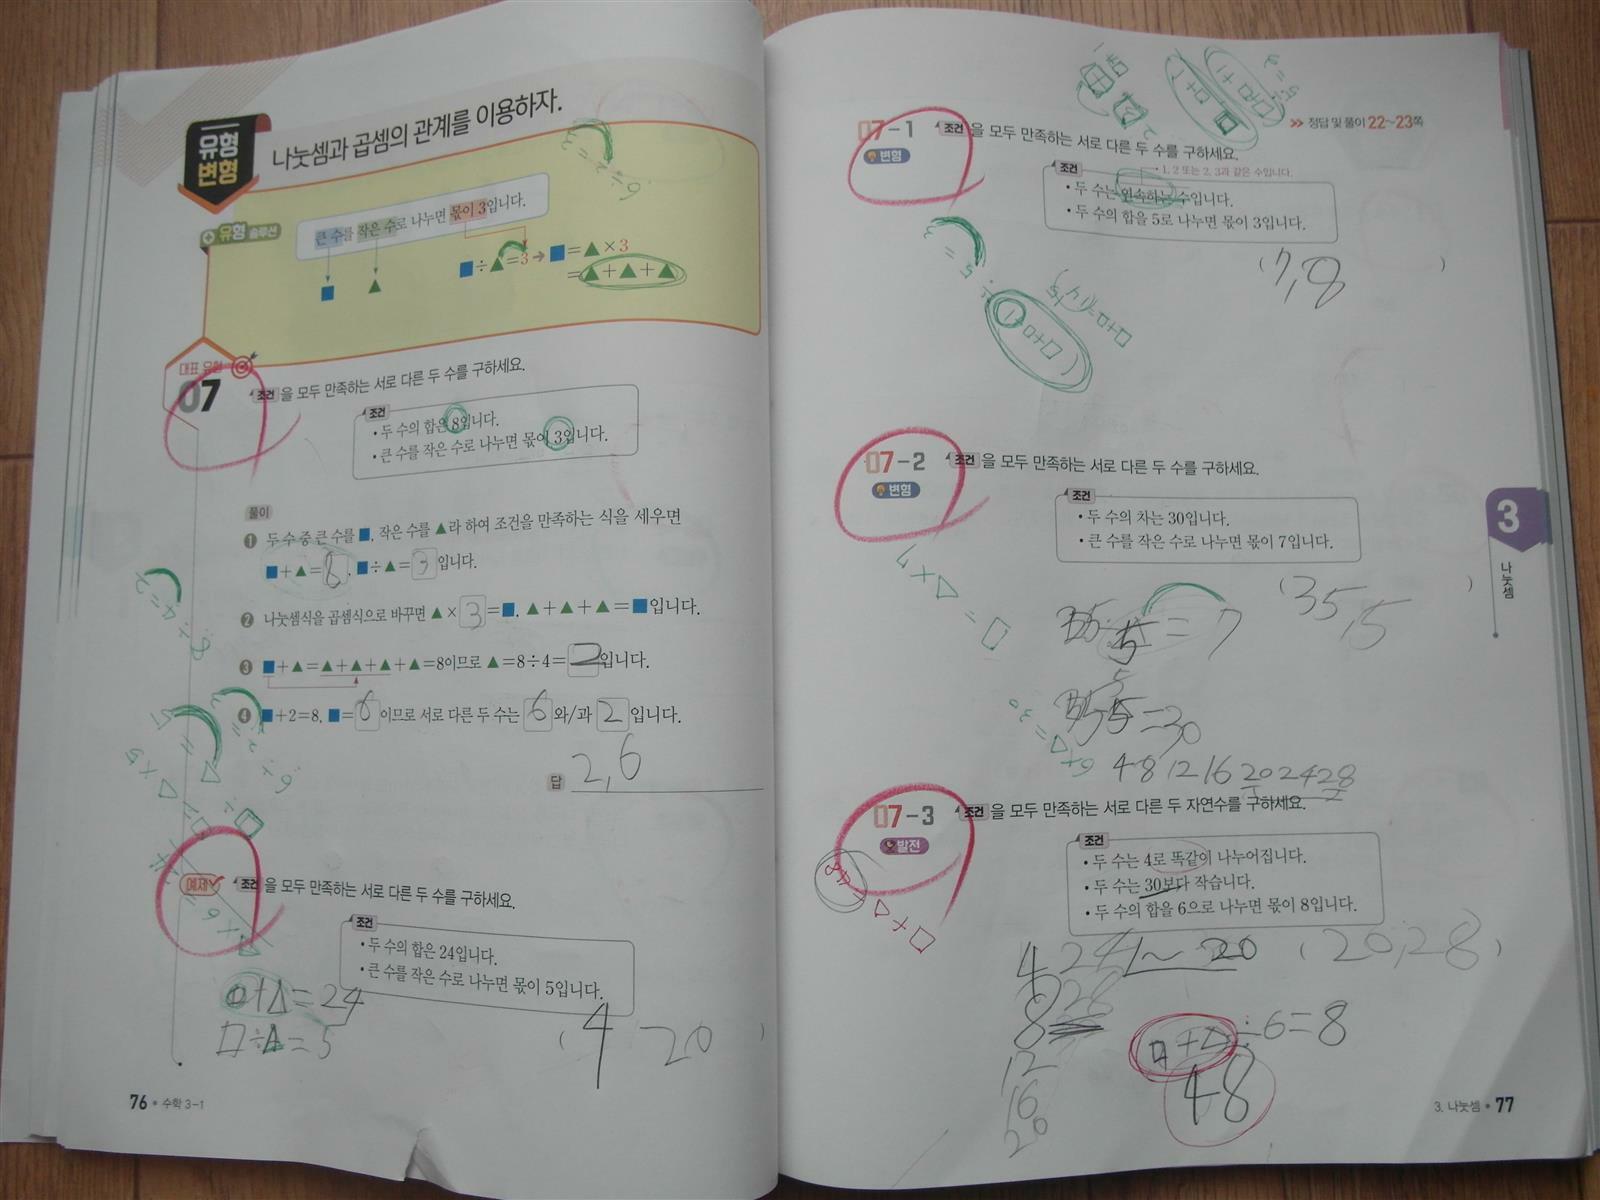 유형 변형
나눗셈과 곱셈의 관계를 이용하자.
유형 솔루션
큰 수를 작은 수로 나누면 몫이 3입니다.
■÷▲=3 → ■=▲×3
=▲+▲+▲
6÷2=3
대표 유형
07
조건을 모두 만족하는 서로 다른 두 수를 구하세요.
조건
• 두 수의 합은 8입니다.
• 큰 수를 작은 수로 나누면 몫이 3입니다.
풀이
❶ 두 수 중 큰 수를 ■, 작은 수를 ▲라 하여 조건을 만족하는 식을 세우면
■+▲=8, ■÷▲=3입니다.
❷ 나눗셈식을 곱셈식으로 바꾸면 ▲×3=■, ▲+▲+▲=■입니다.
❸ ■+▲=▲+▲+▲+▲=8이므로 ▲=8÷4=2입니다.
❹ ■+2=8, ■=6이므로 서로 다른 두 수는 6와/과 2입니다.
답 2,6
8÷4=2
6÷2=3
예제
조건을 모두 만족하는 서로 다른 두 수를 구하세요.
조건
• 두 수의 합은 24입니다.
• 큰 수를 작은 수로 나누면 몫이 5입니다.
□+△=24
□÷△=5
( 4 20 )
76 • 수학 3-1
정답 및 풀이 22~23쪽
07-1
변형
조건을 모두 만족하는 서로 다른 두 수를 구하세요.
• 1, 2 또는 2, 3과 같은 수입니다.
조건
• 두 수는 연속하는 수입니다.
• 두 수의 합을 5로 나누면 몫이 3입니다.
( 7,8 )
07-2
변형
조건을 모두 만족하는 서로 다른 두 수를 구하세요.
조건
• 두 수의 차는 30입니다.
• 큰 수를 작은 수로 나누면 몫이 7입니다.
( 35,5 )
□=△×7
6×△=30
4 8 12 16 20 24 28
07-3
발전
조건을 모두 만족하는 서로 다른 두 자연수를 구하세요.
조건
• 두 수는 4로 똑같이 나누어집니다.
• 두 수는 30보다 작습니다.
• 두 수의 합을 6으로 나누면 몫이 8입니다.
( 20,28 )
□+△=48
4 24
8 28
12
16
20
□+△÷6=8
48
3
나눗셈
3. 나눗셈 • 77